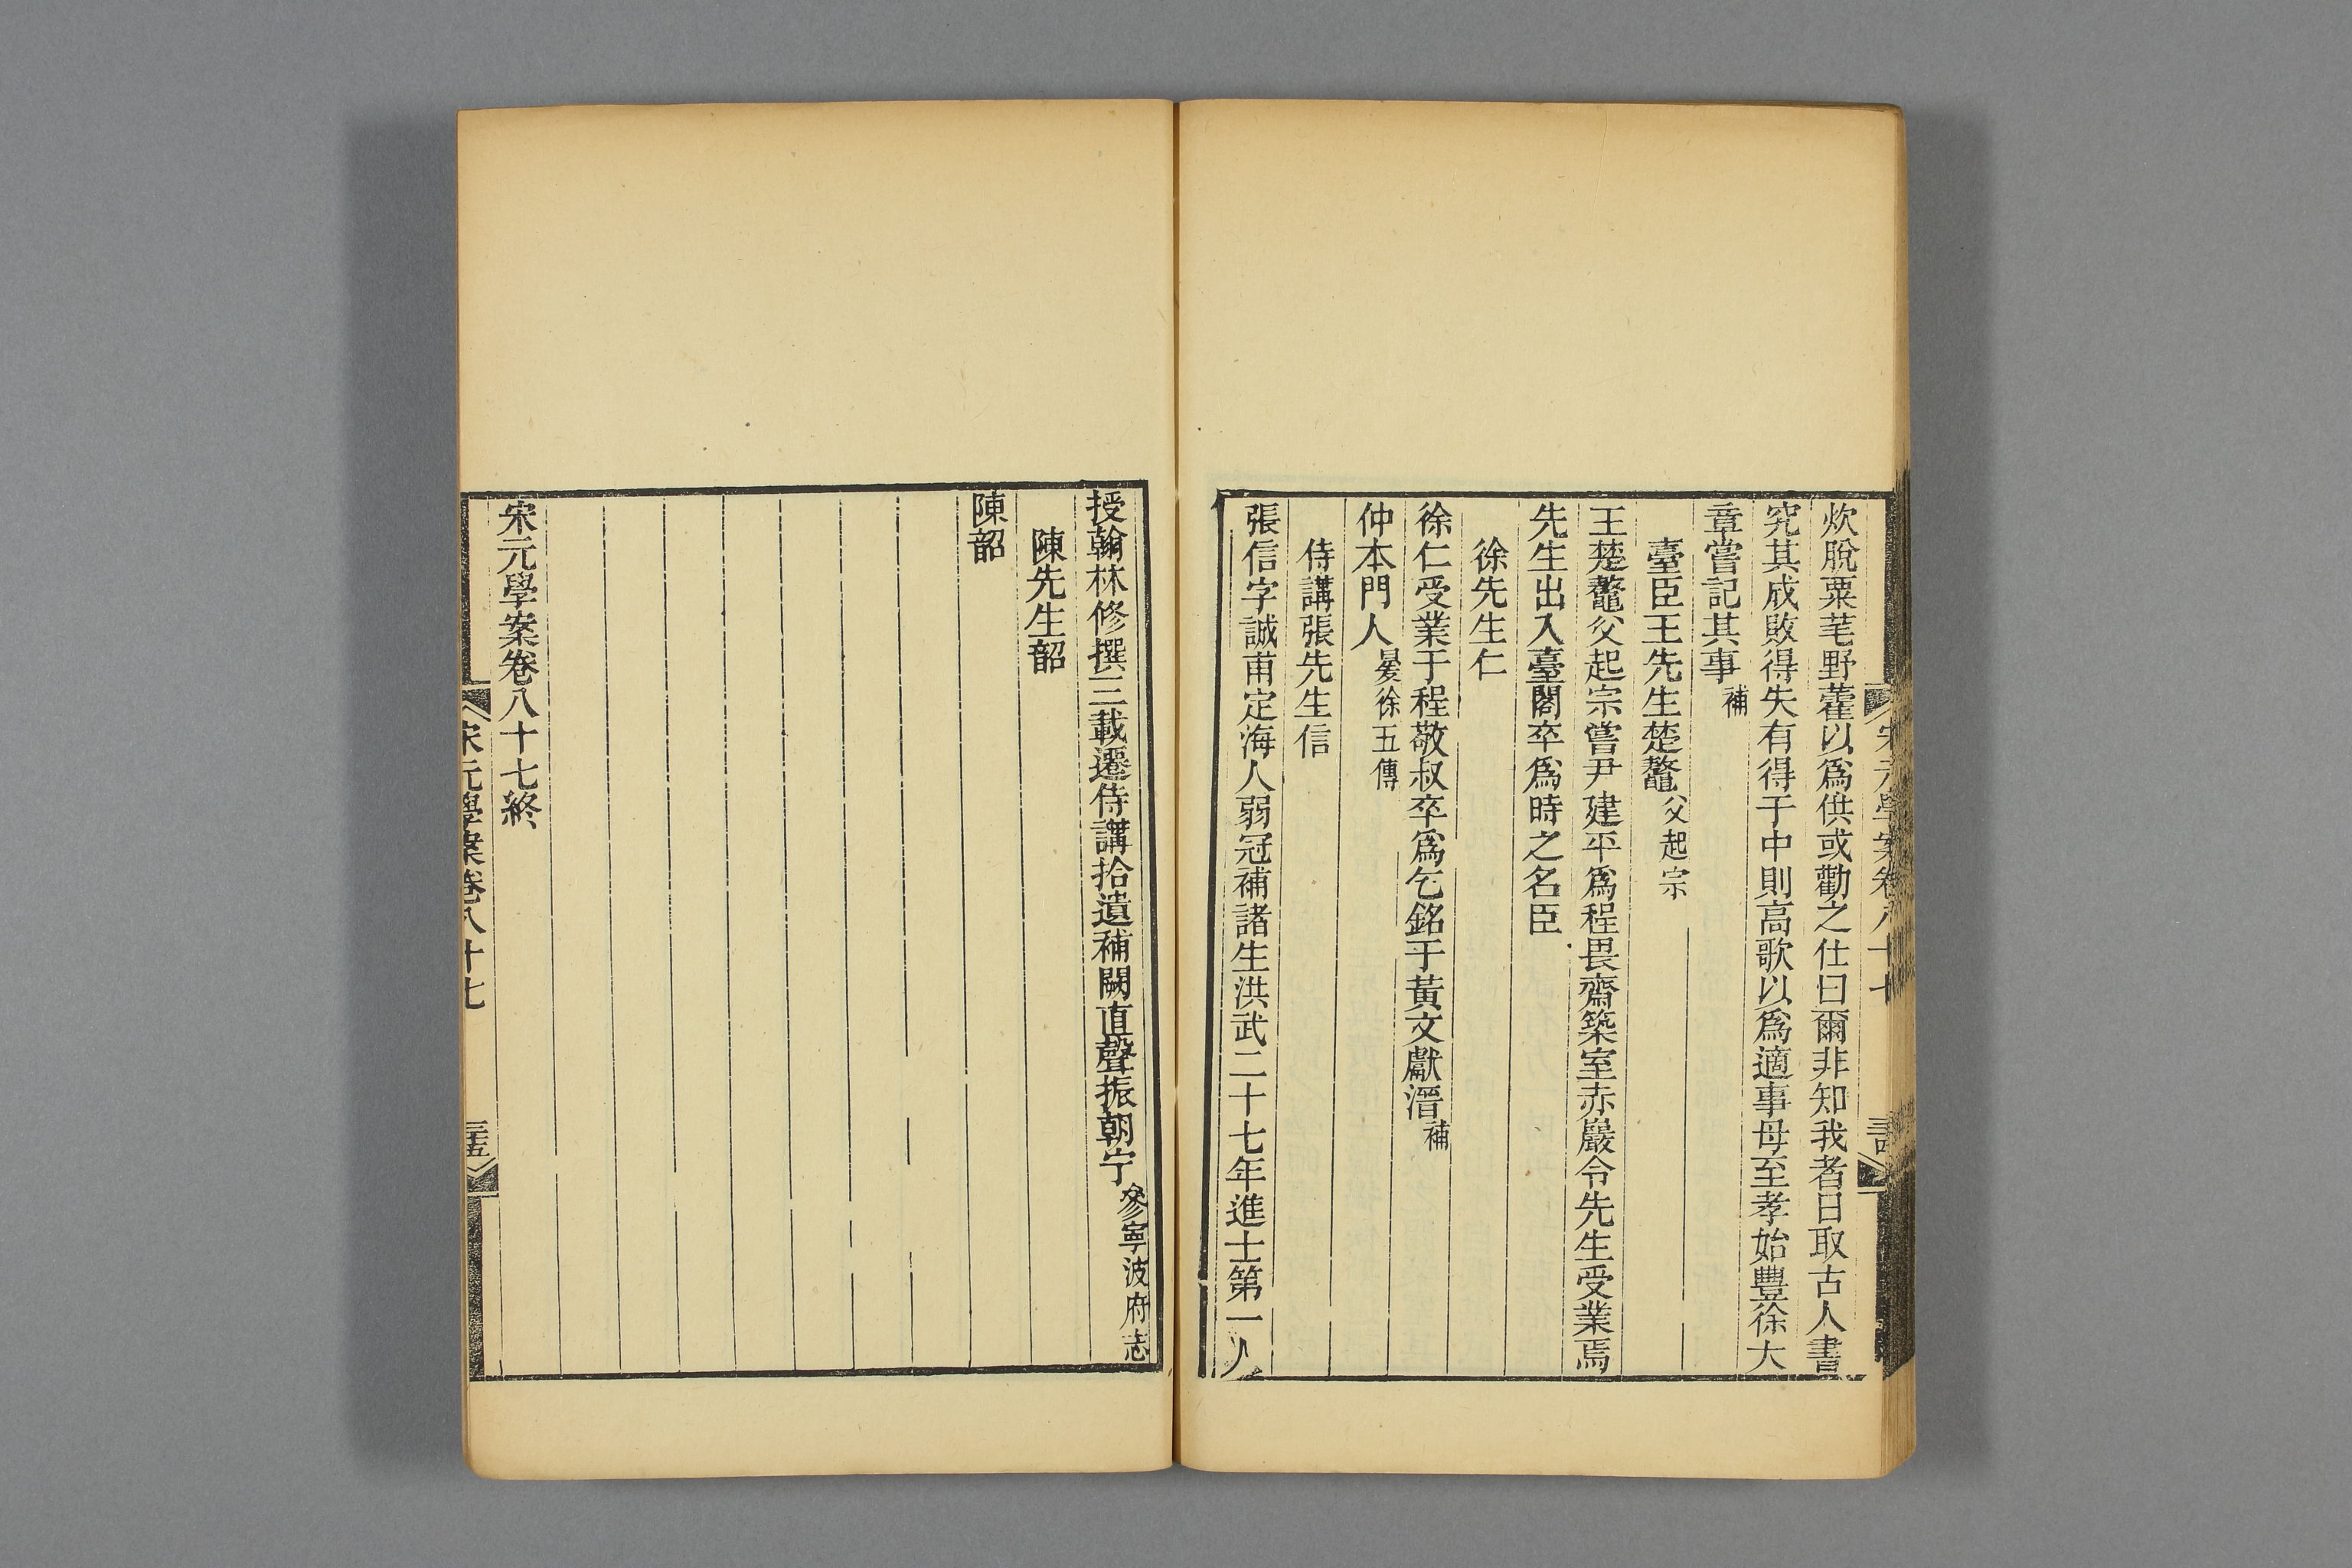 宋元學案卷八十七
三十四
炊脫粟芼野藿以爲供或勸之仕曰爾非知我者日取古人書
究其成敗得失有得于中則高歌以爲適事母至孝始豐徐大
章嘗記其事補
臺臣王先生楚鼇父起宗
王楚鼇父起宗嘗尹建平爲程畏齋築室赤巖令先生受業焉
先生出入臺閣卒爲時之名臣
徐先生仁
徐仁受業于程敬叔卒爲乞銘于黃文獻溍補
仲本門人晏徐五傳
侍講張先生信
張信字誠甫定海人弱冠補諸生洪武二十七年進士第一人
授翰林修撰三載遷侍講拾遺補闕直聲振朝宁參寧波府志
陳先生韶
陳韶
宋元學案卷八十七終
宋元學案卷八十七
三十五